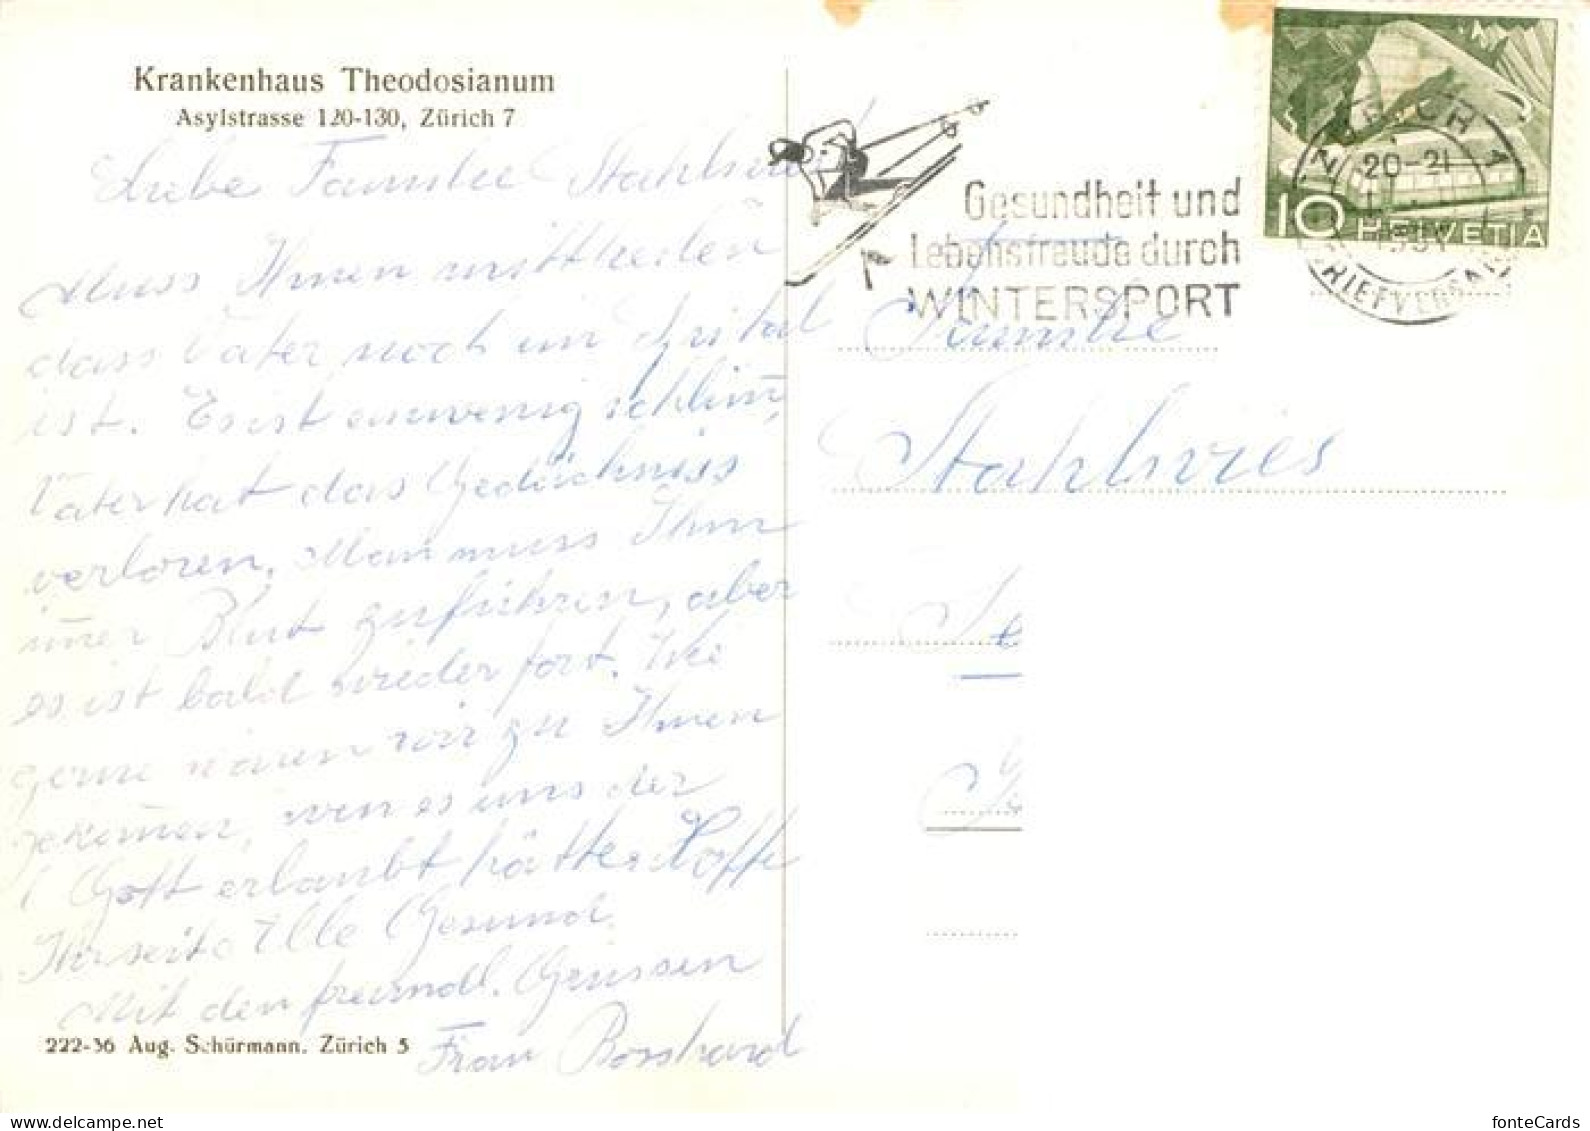 Krankenhaus Theodosianum
Asylstrasse 120-130, Zürich 7
Liebe Familie
Muss Ihnen mittheilen
dass Vater noch im Spital
ist. Es ist einwenig schlim̅,
Vater hat das Gedächniss
verloren, Man muss Ihm
im̅er Blut zuführen, aber
es ist bald wieder fort. Wie
gerne wären wir zu Ihnen
gekom̅en, wen es uns der
Gott erlaubt hätte. Hoffe
Ihr seit Alle Gesund.
Mit den freundl. Grüssen
Frau Bosshard
222-36 Aug. Schürmann, Zürich 5
Gesundheit und
Lebensfreude durch
WINTERSPORT
ZÜRICH 1
20-21
BRIEFVERSAND
10 HELVETIA
Familie
Stahlvries
fonteCards